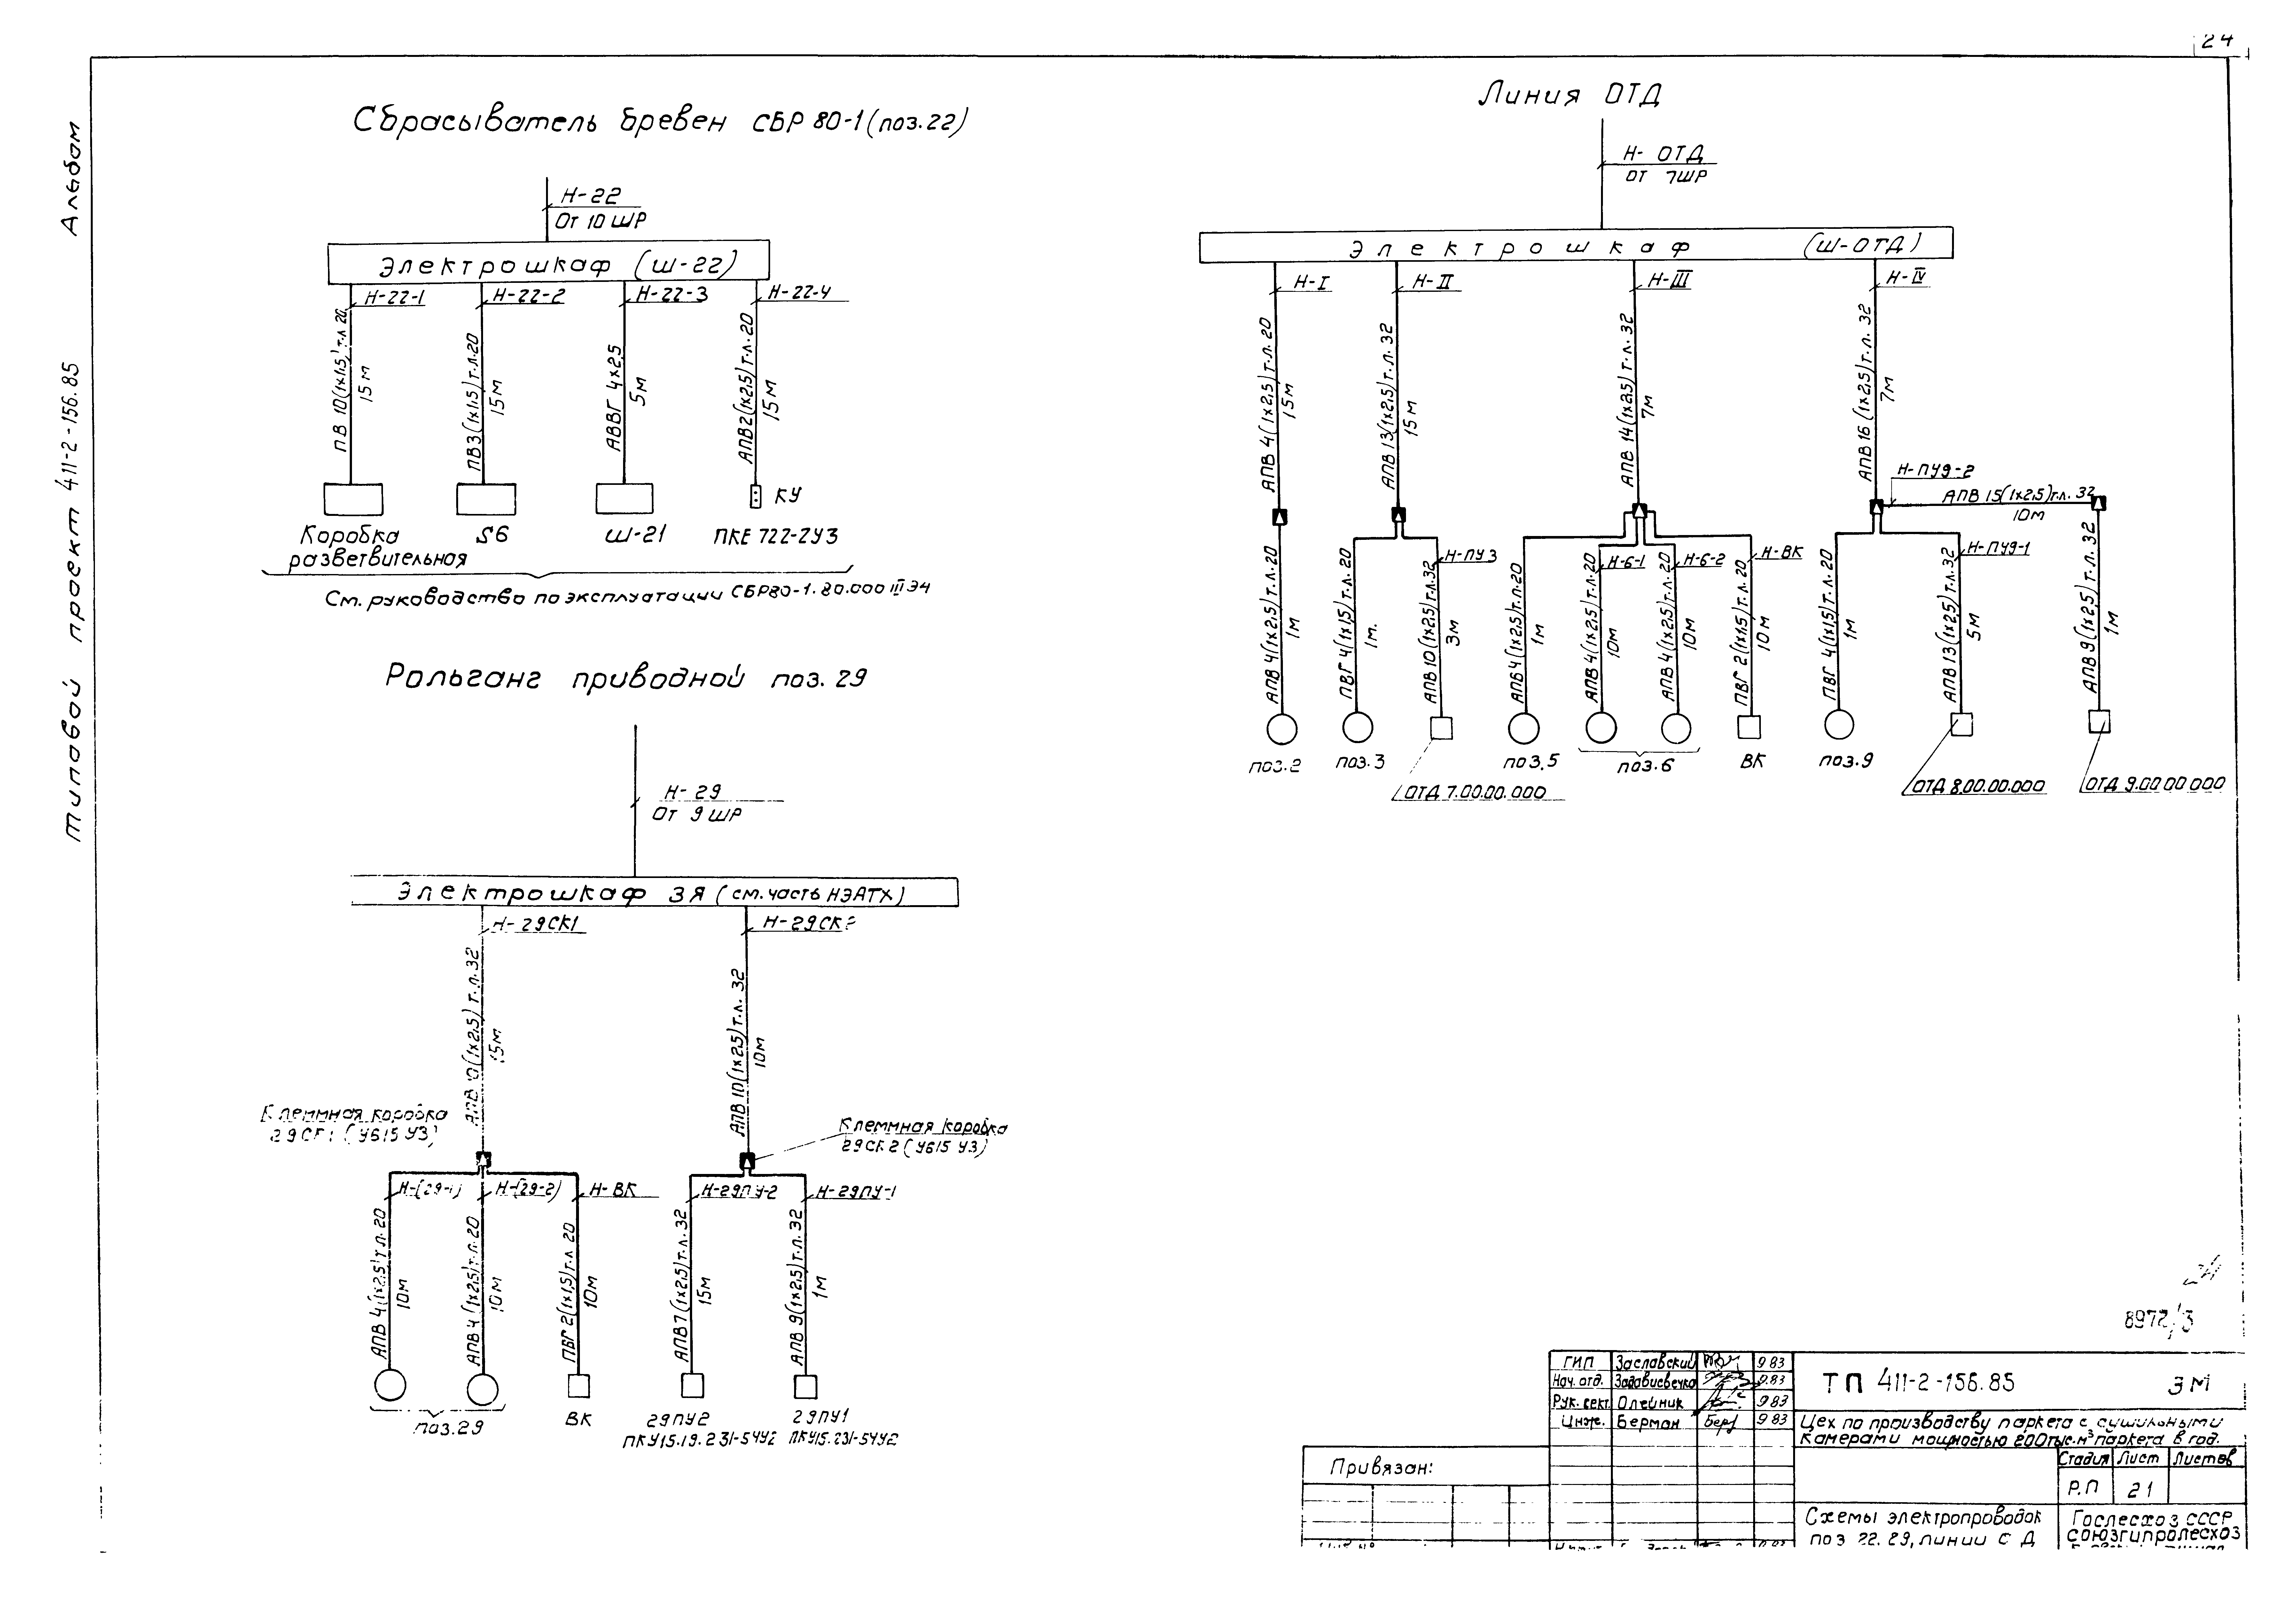 24
Альбом
типовой проект 411-2-156.85
Сбрасыватель бревен СБР 80-1 (поз.22)
Н-22
От 10 ШР
Электрошкаф (Ш-22)
Н-22-1
Н-22-2
Н-22-3
Н-22-4
ПВ 10(1х1,5) т.л. 20
15м
ПВ3(1х1,5) т.л.20
15м
АВВГ 4х2,5
5м
АПВ2(1х2,5) т.л. 20
15м
КУ
Коробка
разветвительная
S6
Ш-21
ПКЕ 722-2У3
См. руководство по эксплуатации СБР80-1.80.000 III ЭЧ
Линия ОТД
Н- ОТД
от 7ШР
Электрошкаф (Ш-ОТД)
Н-I
Н-II
Н-III
Н-IV
АПВ 4(1х2,5) т.л. 20
15м
АПВ 13(1х2,5) т.л. 32
15м
АПВ 14(1х2,5) т.л. 32
7м
АПВ 16(1х2,5) т.л. 32
7м
Н-ПУ9-2
АПВ 15(1х2,5) т.л. 32
10м
Н-ПУ3
Н-6-1
Н-6-2
Н-ВК
Н-ПУ9-1
АПВ 4(1х2,5) т.л. 20
1м
ПВГ 4(1х1,5) т.л. 20
1м.
АПВ 10(1х2,5) т.л.32
3м
АПВ 4(1х2,5) т.л.20
1м
АПВ 4(1х2,5) т.л. 20
10м
АПВ 4(1х2,5) т.л. 20
10м
ПВГ 2(1х1,5) т.л. 20
10м
ПВГ 4(1х1,5) т.л. 20
1м
АПВ 13(1х2,5) т.л. 32
5м
АПВ 9(1х2,5) т.л. 32
1м
поз.2
поз.3
поз.5
поз.6
ВК
поз.9
ОТД 7.00.00.000
ОТД 8.00.00.000
ОТД 9.00 00 000
Рольганг приводной поз. 29
Н-29
От 9 ШР
Электрошкаф 3Я (см. часть НЭАТХ)
Н-29СК1
Н-29СК2
АПВ 10(1х2,5) т.л. 32
15м
АПВ 10(1х2,5) т.л. 32
10м
Клеммная коробка
29СК1 (У615 У3)
Клеммная коробка
29СК2 (У615 У3)
Н-(29-1)
Н-(29-2)
Н-ВК
Н-29ПУ-2
Н-29ПУ-1
АПВ 4(1х2,5) т.л. 20
10м
АПВ 4(1х2,5) т.л. 20
10м
ПВГ 2(1х1,5) т.л. 20
10м
АПВ 7(1х2,5) т.л. 32
15м
АПВ 9(1х2,5) т.л. 32
1м
поз.29
ВК
29ПУ2
ПКУ15.19.231-54У2
29ПУ1
ПКУ15.231-54У2
24
8972/3
ГИП Заславский 9 83
Нач. отд. 9.83
Рук. сект. Олейник 9 83
Инж. Берман 9 83
ТП 411-2-156.85 ЭМ
Цех по производству паркета с сушильными
камерами мощностью 200тыс.м³ паркета в год.
Привязан:
Стадия Лист Листов
Р.П 21
Схемы электропроводок
поз 22. 29, линии ОТД
Гослесхоз СССР
союзгипролесхоз